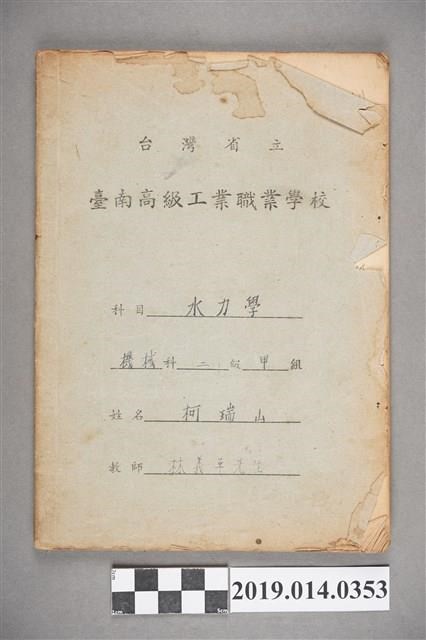 台灣省立
臺南高級工業職業學校
科目 水力學
機械科 二 級 甲 組
姓名 柯瑞山
教師 林義平先生
2cm
1cm 5cm
2019.014.0353